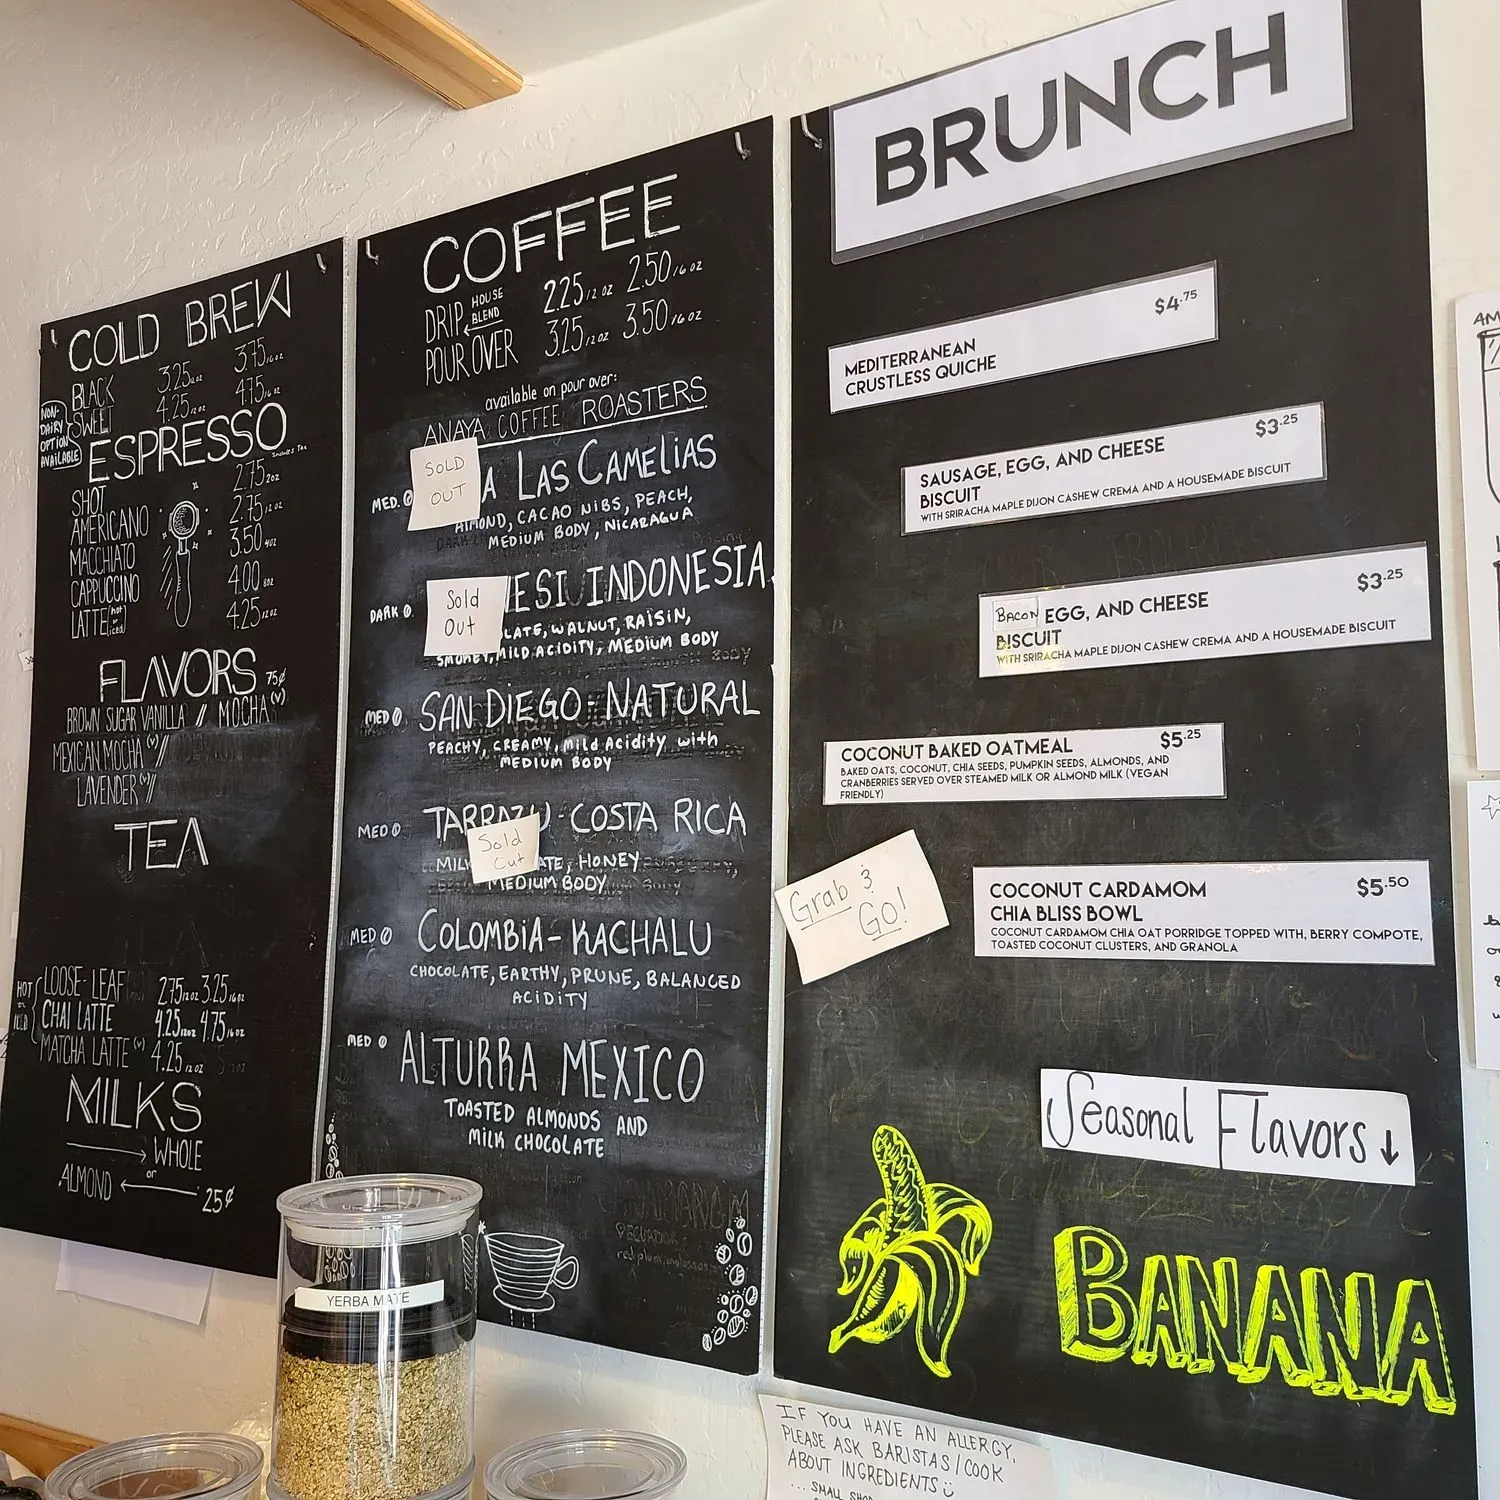 COLD BREW
BLACK 3.25 12 oz 3.75 16 oz
SWEET 4.25 12 oz 4.75 16 oz
NON-
DAIRY
OPTION
AVAILABLE
ESPRESSO
Includes Tax
SHOT 2.75 2oz
AMERICANO 2.75 12 oz
MACCHIATO 3.50 4oz
CAPPUCCINO 4.00 8oz
LATTE (hot or iced) 4.25 12 oz
FLAVORS 75¢
BROWN SUGAR VANILLA // MOCHA (V)
MEXICAN MOCHA (V) //
LAVENDER (V) //
TEA
HOT or ICED
LOOSE-LEAF 2.75 12 oz 3.25 16 oz
CHAI LATTE 4.25 12oz 4.75 16 oz
MATCHA LATTE (V) 4.25 12 oz
MILKS
WHOLE
or
ALMOND 25¢
COFFEE
DRIP HOUSE BLEND 2.25 12 oz 2.50 16 oz
POUR OVER 3.25 12 oz 3.50 16 oz
available on pour over:
ANAYA COFFEE ROASTERS
SOLD
OUT
MED. A LAS CAMELIAS
ALMOND, CACAO NIBS, PEACH,
MEDIUM BODY, NICARAGUA
Sold
Out
DARK ESI INDONESIA
LATE, WALNUT, RAISIN,
SMOKEY, MILD ACIDITY, MEDIUM BODY
MED SAN DIEGO-NATURAL
PEACHY, CREAMY, Mild Acidity with
MEDIUM BODY
MED TARRAZU-COSTA RICA
Sold
Out
MILK ATE, HONEY
MEDIUM BODY
MED COLOMBIA-KACHALU
CHOCOLATE, EARTHY, PRUNE, BALANCED
ACIDITY
MED ALTURRA MEXICO
TOASTED ALMONDS AND
MILK CHOCOLATE
YERBA MATE
BRUNCH
$4.75
MEDITERRANEAN
CRUSTLESS QUICHE
$3.25
SAUSAGE, EGG, AND CHEESE
BISCUIT
WITH SRIRACHA MAPLE DIJON CASHEW CREMA AND A HOUSEMADE BISCUIT
$3.25
BACON EGG, AND CHEESE
BISCUIT
WITH SRIRACHA MAPLE DIJON CASHEW CREMA AND A HOUSEMADE BISCUIT
COCONUT BAKED OATMEAL $5.25
BAKED OATS, COCONUT, CHIA SEEDS, PUMPKIN SEEDS, ALMONDS, AND
CRANBERRIES SERVED OVER STEAMED MILK OR ALMOND MILK (VEGAN
FRIENDLY)
Grab &
GO!
COCONUT CARDAMOM $5.50
CHIA BLISS BOWL
COCONUT CARDAMOM CHIA OAT PORRIDGE TOPPED WITH, BERRY COMPOTE,
TOASTED COCONUT CLUSTERS, AND GRANOLA
Seasonal Flavors ↓
BANANA
IF YOU HAVE AN ALLERGY,
PLEASE ASK BARISTAS/COOK
ABOUT INGREDIENTS
... SMALL